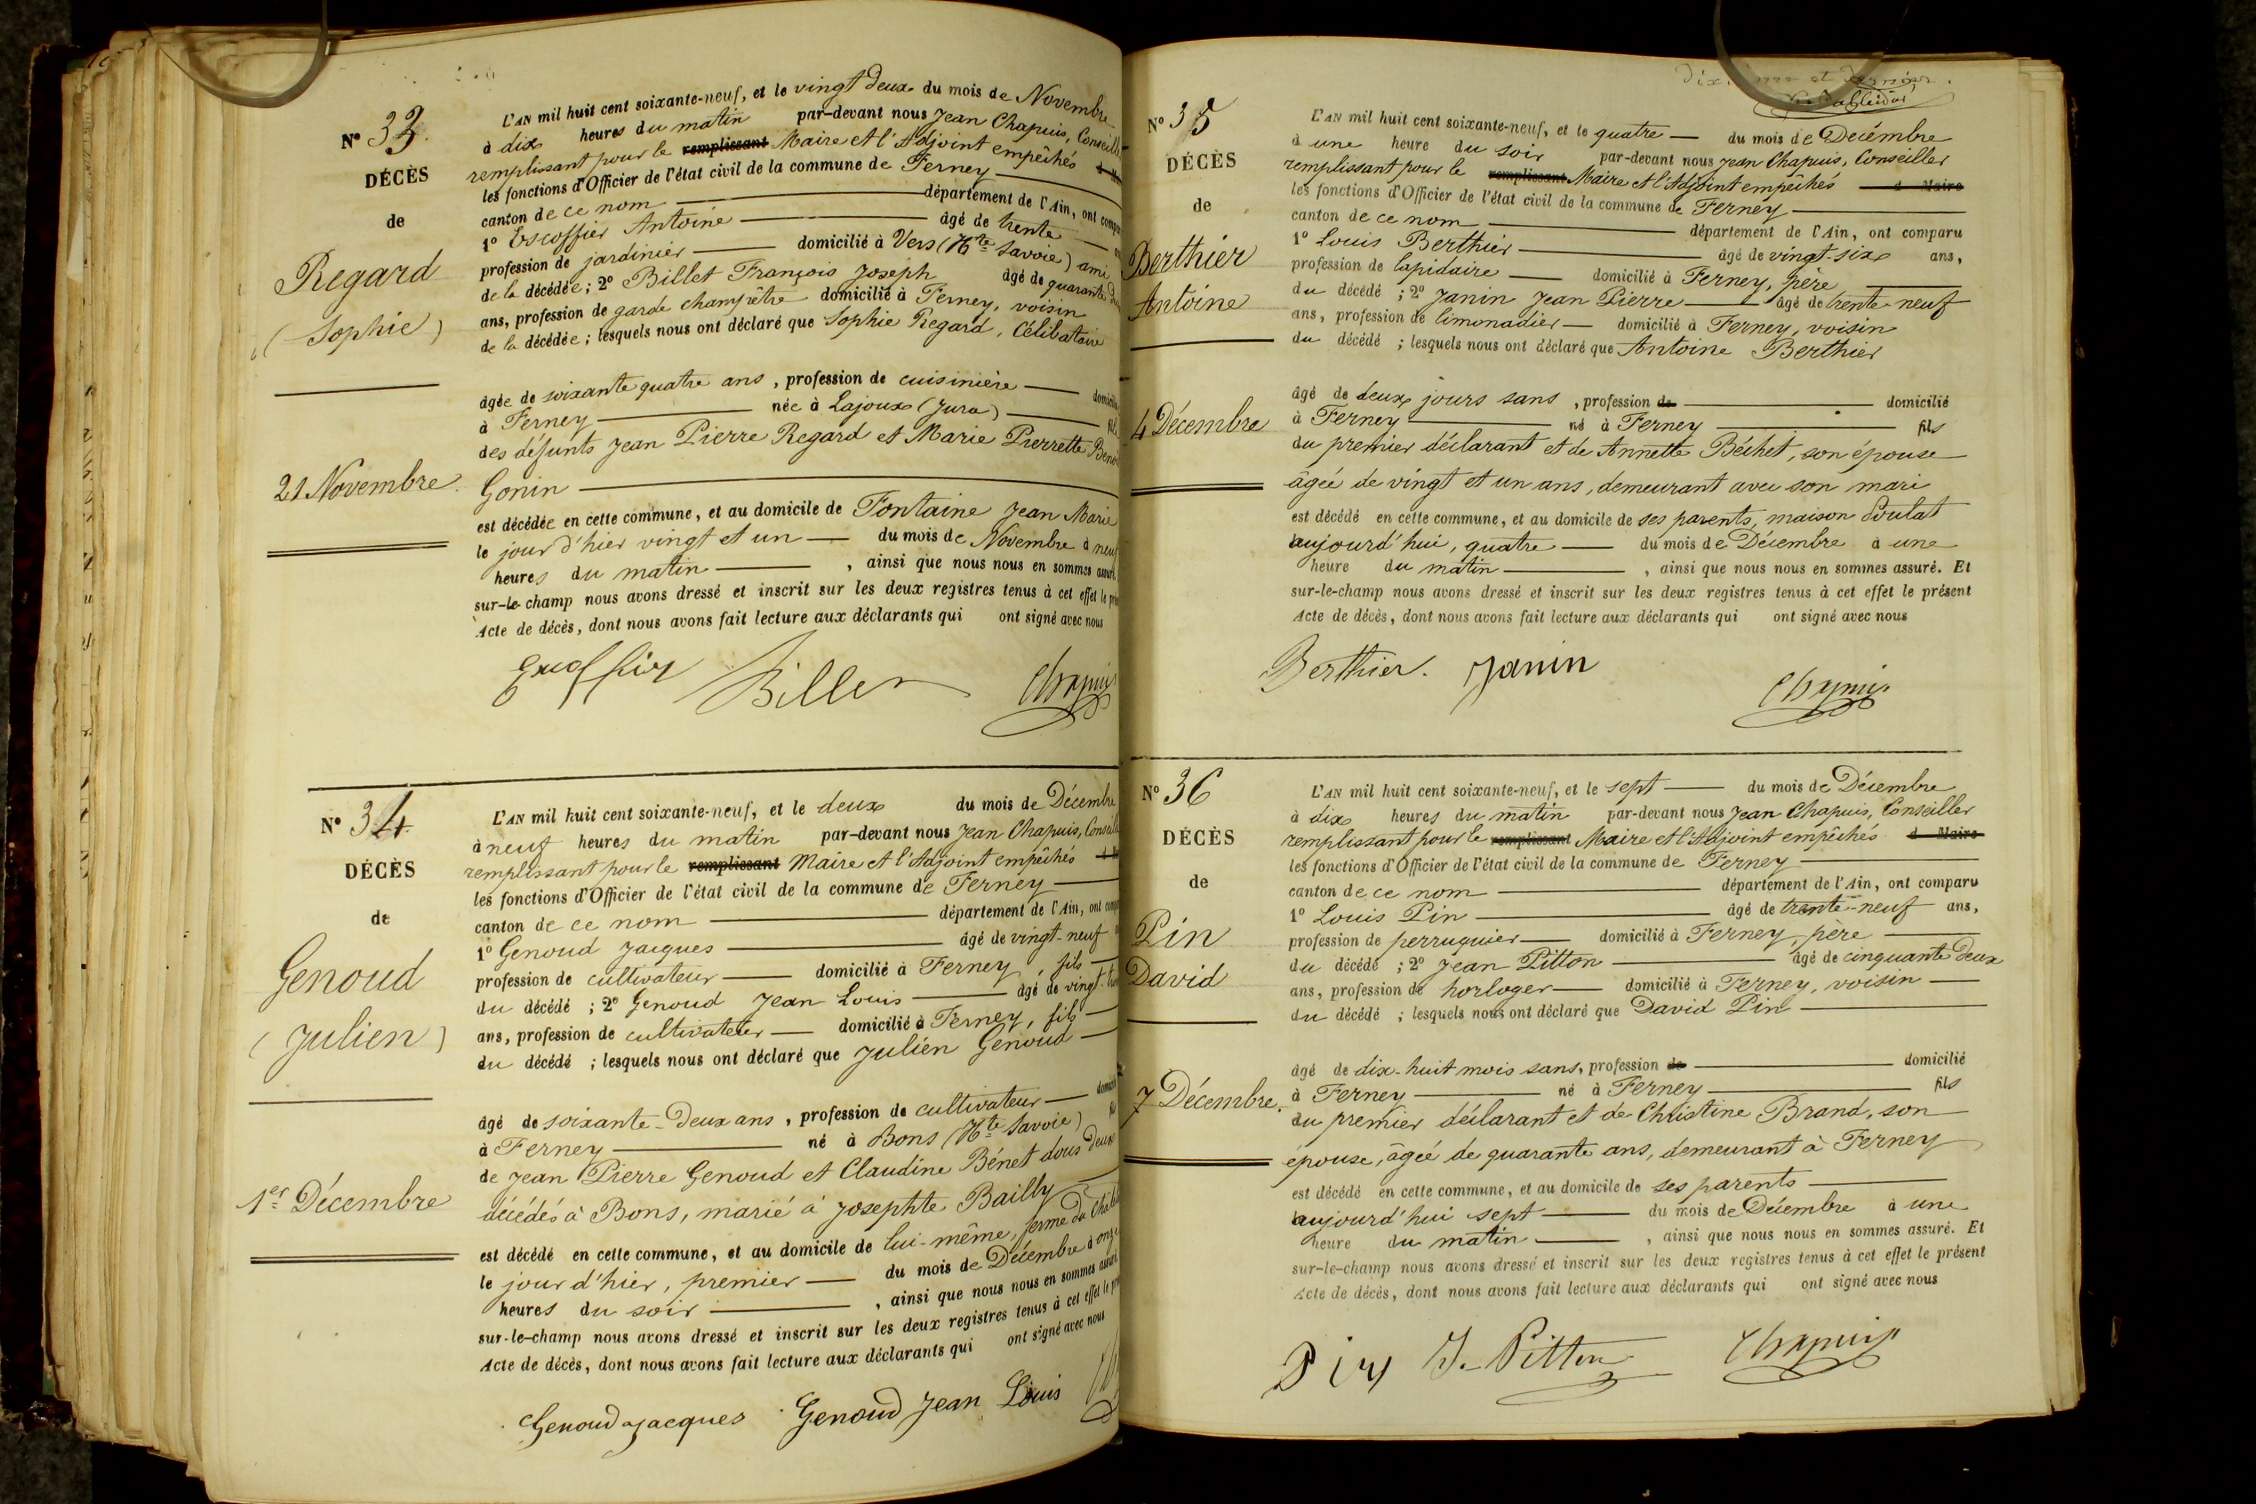 N° 33.
DÉCÈS
de
Regard
(Sophie)
21 Novembre.
L'AN mil huit cent soixante-neuf, et le vingt deux du mois de Novembre
à dix heures du matin par-devant nous Jean Chapuis,
remplissant pour le remplissant Maire et l'Adjoint empêchés
les fonctions d'Officier de l'état civil de la commune de Ferney
canton de ce nom département de l'Ain, ont
1° Escoffier Antoine âgé de trente
profession de jardinier domicilié à Vers (Hte Savoie) ami
de la décédée; 2° Billet François Joseph âgé de quarante
ans, profession de garde champêtre domicilié à Ferney, voisin
de la décédée; lesquels nous ont déclaré que Sophie Regard, Célibataire
âgée de soixante quatre ans, profession de cuisinière
à Ferney née à Lajoux (Jura)
des défunts Jean Pierre Regard et Marie Pierrette
Gonin
est décédée en cette commune, et au domicile de Fontaine Jean Marie
le jour d'hier vingt et un du mois de Novembre à neuf
heures du matin, ainsi que nous nous en sommes
sur-le-champ nous avons dressé et inscrit sur les deux registres tenus à cet effet le
Acte de décès, dont nous avons fait lecture aux déclarants qui ont signé avec nous
Escoffier Billet Chapuis
N° 34.
DÉCÈS
de
Genoud
(Julien)
1er Décembre
L'AN mil huit cent soixante-neuf, et le deux du mois de Décembre
à neuf heures du matin par-devant nous Jean Chapuis,
remplissant pour le remplissant Maire et l'Adjoint empêchés
les fonctions d'Officier de l'état civil de la commune de Ferney
canton de ce nom département de l'Ain, ont
1° Genoud Jacques âgé de vingt-neuf
profession de cultivateur domicilié à Ferney, fils
du décédé; 2° Genoud Jean Louis âgé de vingt-
ans, profession de cultivateur domicilié à Ferney, fils
du décédé; lesquels nous ont déclaré que Julien Genoud
âgé de soixante-deux ans, profession de cultivateur
à Ferney né à Bons (Hte Savoie)
de Jean Pierre Genoud et Claudine Bénet tous deux
décédés à Bons, marié à Josephte Bailly
est décédé en cette commune, et au domicile de lui-même, ferme du
le jour d'hier, premier du mois de Décembre à onze
heures du soir, ainsi que nous nous en sommes
sur-le-champ nous avons dressé et inscrit sur les deux registres tenus à cet effet le
Acte de décès, dont nous avons fait lecture aux déclarants qui ont signé avec nous
Genoud Jacques Genoud Jean Louis
N° 35
DÉCÈS
de
Berthier
Antoine
4 Décembre
L'AN mil huit cent soixante-neuf, et le quatre du mois de Decémbre
à une heure du soir par-devant nous Jean Chapuis, Conseiller
remplissant pour le remplissant Maire et l'Adjoint empêchés d Maire
les fonctions d'Officier de l'état civil de la commune de Ferney
canton de ce nom département de l'Ain, ont comparu
1° Louis Berthier âgé de vingt-six ans,
profession de lapidaire domicilié à Ferney, père
du décédé; 2° Janin Jean Pierre âgé de trente-neuf
ans, profession de limonadier domicilié à Ferney, voisin
du décédé; lesquels nous ont déclaré que Antoine Berthier
âgé de deux jours sans, profession de domicilié
à Ferney né à Ferney fils
du premier déclarant et de Annette Béchet, son épouse
âgée de vingt et un ans, demeurant avec son mari
est décédé en cette commune, et au domicile de ses parents, maison
aujourd'hui, quatre du mois de Décembre à une
heure du matin, ainsi que nous nous en sommes assuré. Et
sur-le-champ nous avons dressé et inscrit sur les deux registres tenus à cet effet le présent
Acte de décès, dont nous avons fait lecture aux déclarants qui ont signé avec nous
Berthier. Janin Chapuis
N° 36
DÉCÈS
de
Pin
David
7 Décembre.
L'AN mil huit cent soixante-neuf, et le sept du mois de Décembre
à dix heures du matin par-devant nous Jean Chapuis, Conseiller
remplissant pour le remplissant Maire et l'Adjoint empêchés d Maire
les fonctions d'Officier de l'état civil de la commune de Ferney
canton de ce nom département de l'Ain, ont comparu
1° Louis Pin âgé de trente-neuf ans,
profession de perruquier domicilié à Ferney, père
du décédé; 2° Jean Pitton âgé de cinquante deux
ans, profession de horloger domicilié à Ferney, voisin
du décédé; lesquels nous ont déclaré que David Pin
âgé de dix-huit mois sans, profession de domicilié
à Ferney né à Ferney fils
du premier déclarant et de Christine Brand, son
épouse, âgée de quarante ans, demeurant à Ferney
est décédé en cette commune, et au domicile de ses parents
aujourd'hui sept du mois de Décembre à une
heure du matin, ainsi que nous nous en sommes assuré. Et
sur-le-champ nous avons dressé et inscrit sur les deux registres tenus à cet effet le présent
Acte de décès, dont nous avons fait lecture aux déclarants qui ont signé avec nous
Pin J. Pitton Chapuis